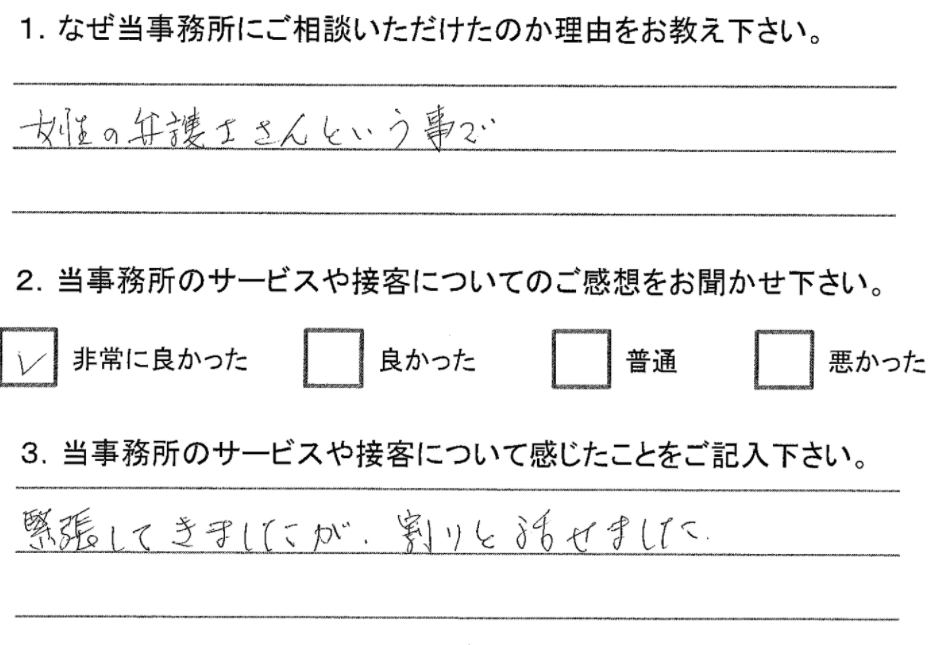 1. なぜ当事務所にご相談いただけたのか理由をお教え下さい。
女性の弁護士さんという事で
2. 当事務所のサービスや接客についてのご感想をお聞かせ下さい。
☑ 非常に良かった ☐ 良かった ☐ 普通 ☐ 悪かった
3. 当事務所のサービスや接客について感じたことをご記入下さい。
緊張してきましたが、割りと話せました。